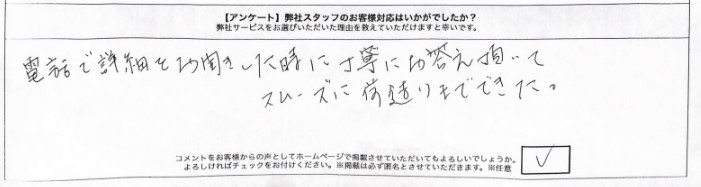 【アンケート】弊社スタッフのお客様対応はいかがでしたか？
弊社サービスをお選びいただいた理由を教えていただけますと幸いです。
電話で詳細をお聞きした時に丁寧にお答え頂いて
スムーズに荷造りまでできた。
コメントをお客様からの声としてホームページで掲載させていただいてもよろしいでしょうか。
よろしければチェックをお付けください。※掲載は必ず匿名とさせていただきます。※任意